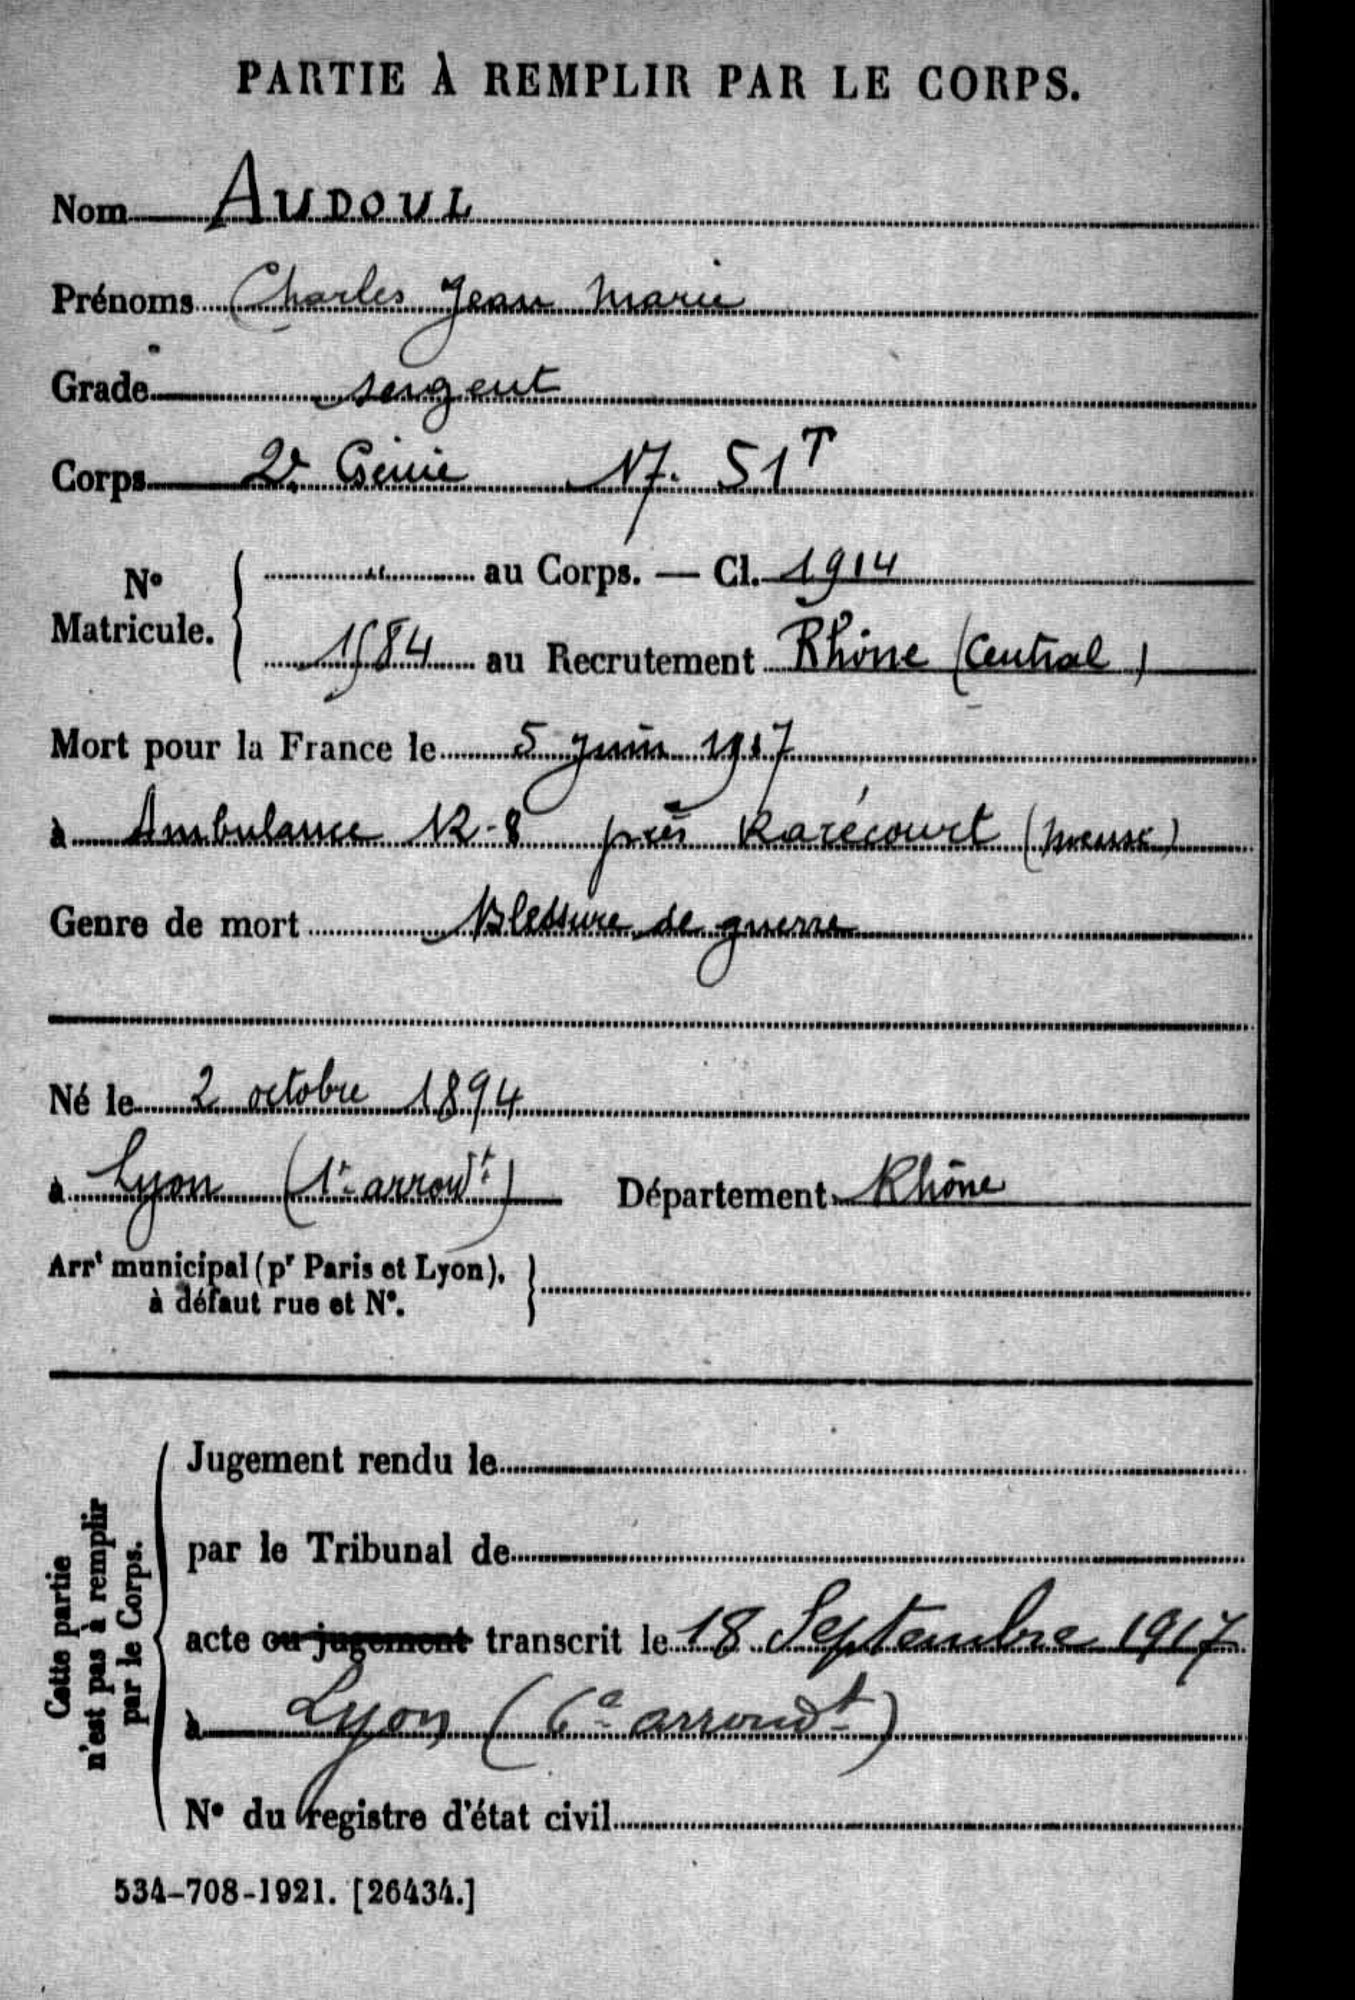 PARTIE À REMPLIR PAR LE CORPS.
Nom AUDOUL
Prénoms Charles Jean Marie
Grade sergent
Corps 2e Génie 51T
N° Matricule. " au Corps. — Cl. 1914
1584 au Recrutement Rhône (Central)
Mort pour la France le 5 juin 1917
à Ambulance près Rarécourt (Meuse)
Genre de mort Blessure de guerre
Né le 2 octobre 1894
à Lyon (1r arrondt) Département Rhône
Arrt municipal (pr Paris et Lyon),
à défaut rue et N°.
Cette partie
n'est pas à remplir
par le Corps.
Jugement rendu le
par le Tribunal de
acte ou jugement transcrit le 18 Septembre 1917
à Lyon (6e arrondt)
N° du registre d'état civil
534-708-1921. [26434.]